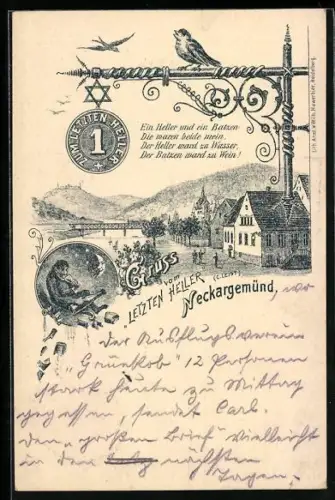 ZUM LETZTEN HELLER
1
Ein Heller und ein Batzen
Die waren beide mein.
Der Heller ward zu Wasser,
Der Batzen ward zu Wein!
Gruss
vom
"LETZTEN HELLER
Neckargemünd, wo
der Ausflugsverein
"Grünekob" 12 Personen
stark heute zu Mittag
gegessen, sendet Carl.
den "großen Brief" vielleicht
in den nächsten
Tagen.